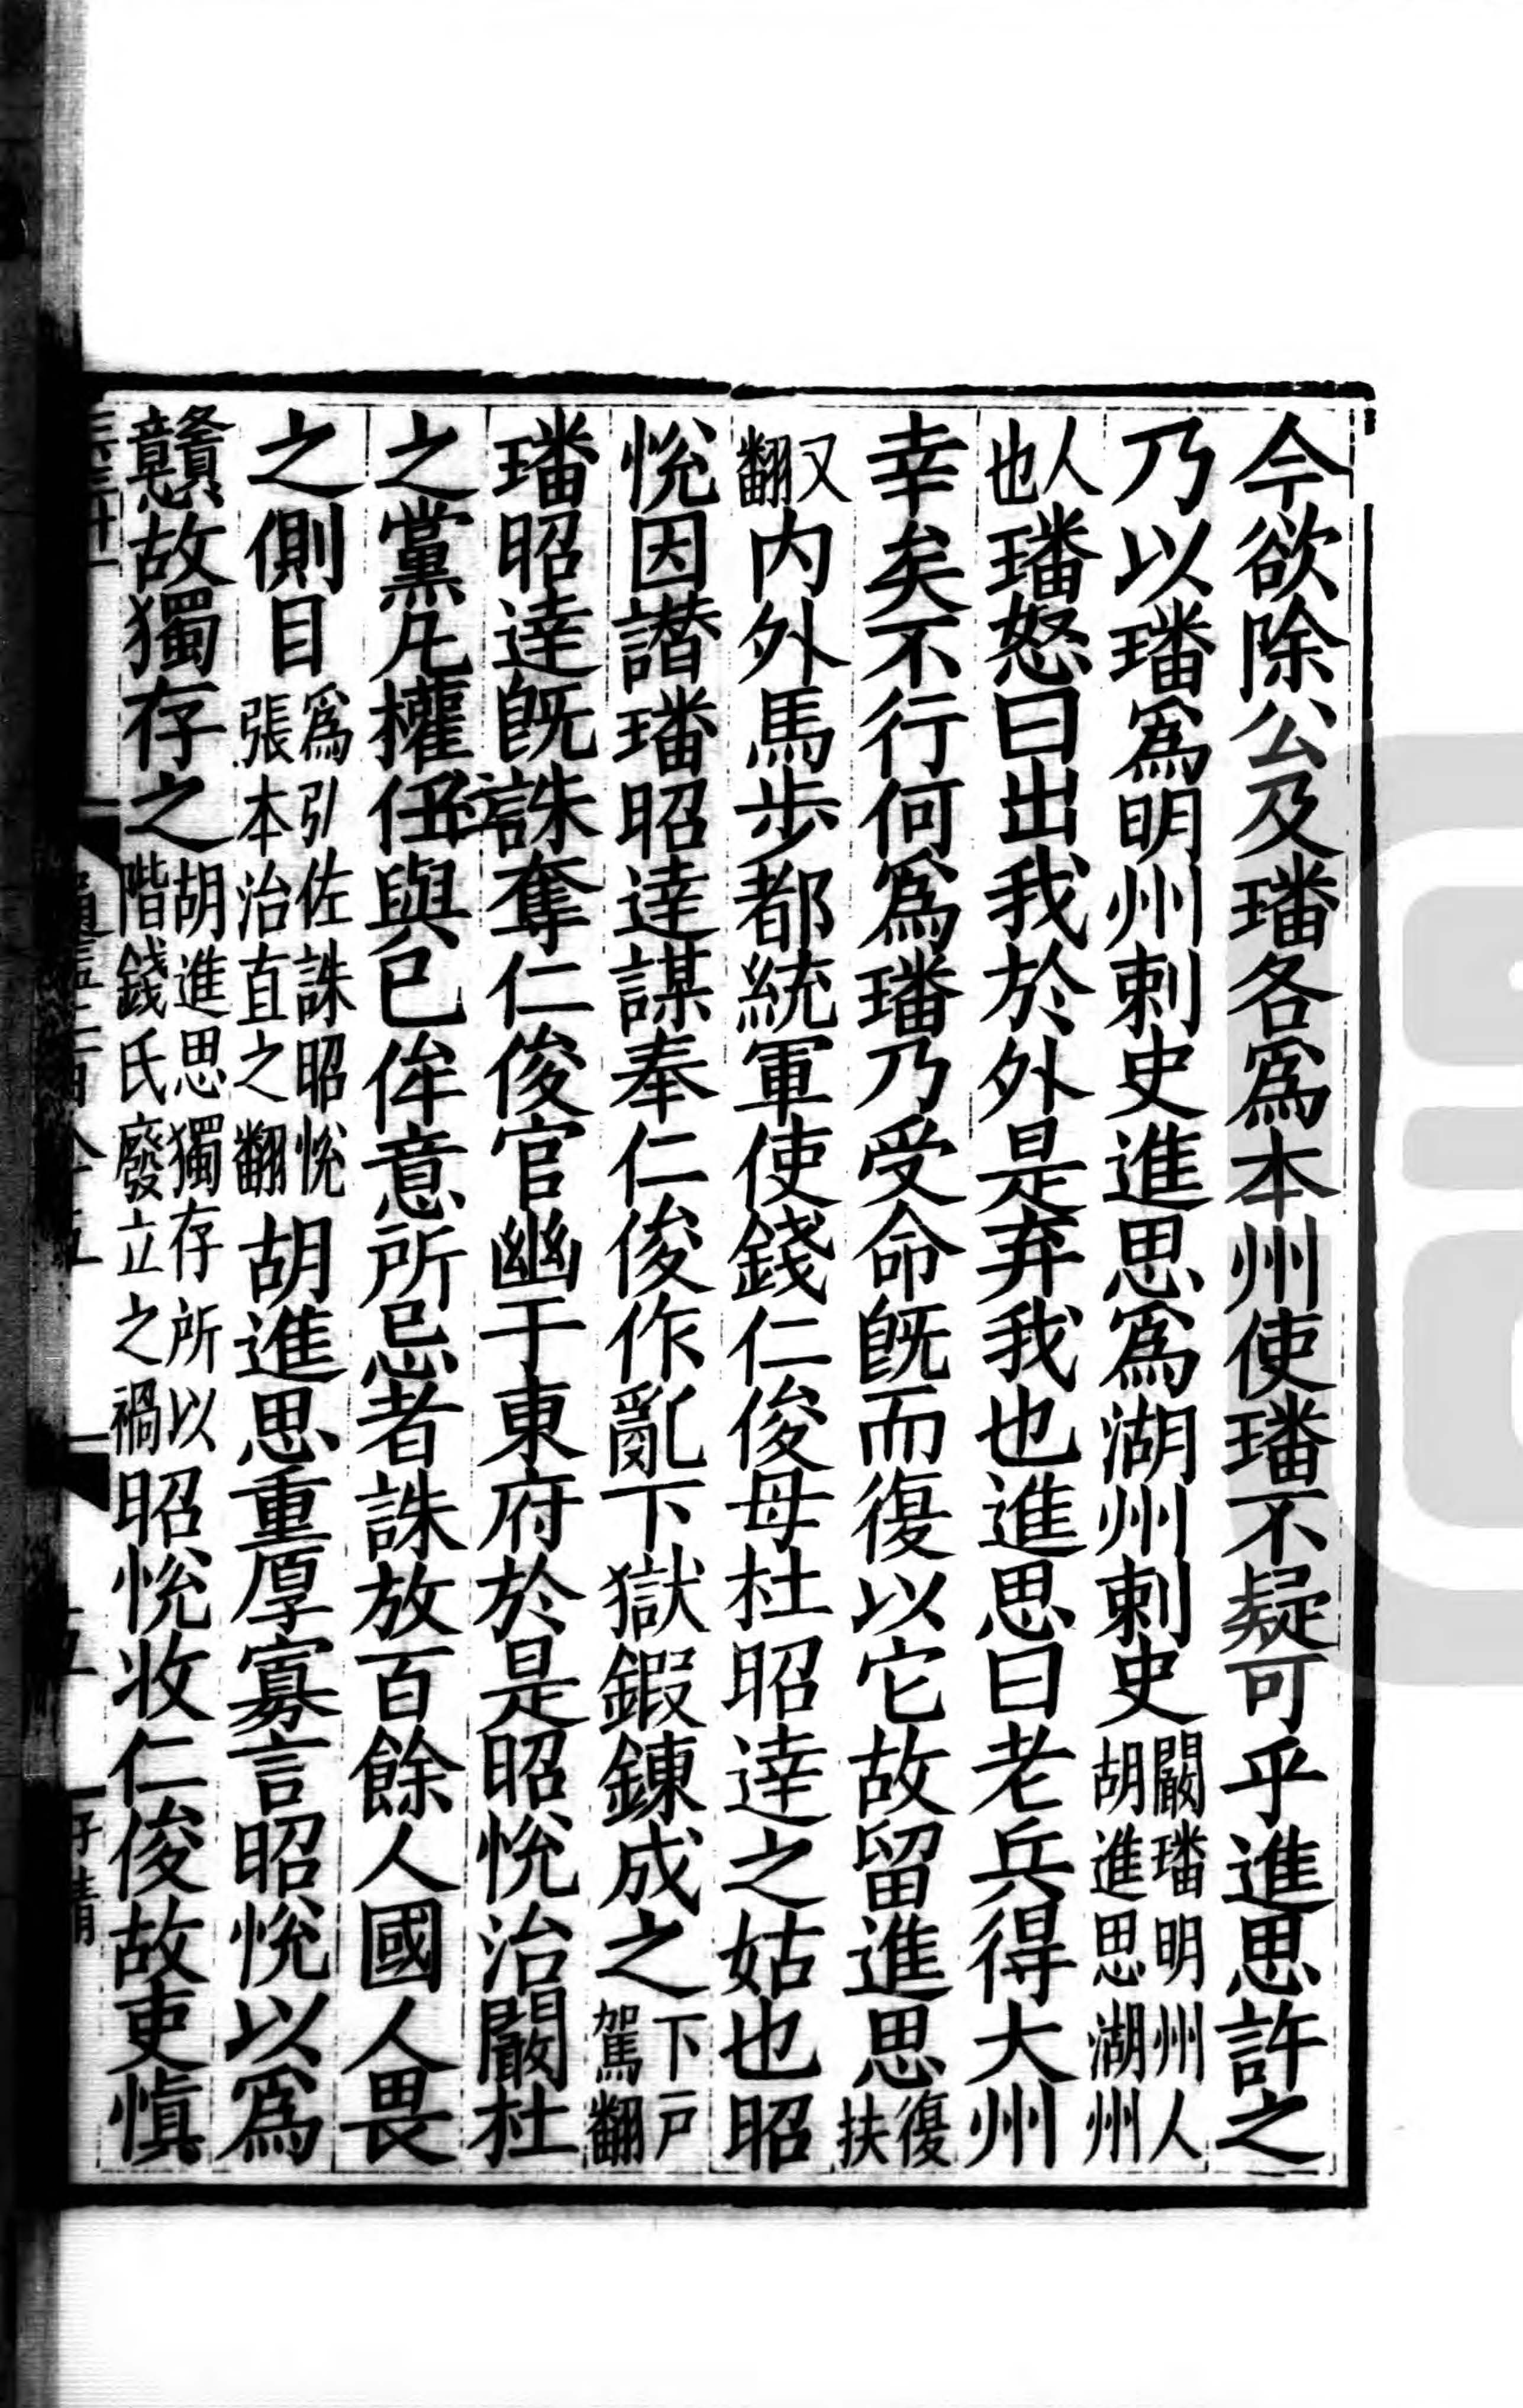 今欲除公及璠各爲本州使璠不疑可乎進思許之
乃以璠爲明州刺史進思爲湖州刺史闞璠明州人胡進思湖州
人也璠怒曰出我於外是弃我也進思曰老兵得大州
幸矣不行何爲璠乃受命旣而復以它故留進思復扶
又翻内外馬步都統軍使錢仁俊母杜昭達之姑也昭
悅因譖璠昭達謀奉仁俊作亂下獄鍜鍊成之下戸駕翻
璠昭達旣誅奪仁俊官幽于東府於是昭悅治闞杜
之黨凡權任與己侔意所忌者誅放百餘人國人畏
之側目爲引佐誅昭悅張本治直之翻胡進思重厚寡言昭悅以爲
戇故獨存之胡進思獨存所以階錢氏廢立之禍昭悅收仁俊故吏愼